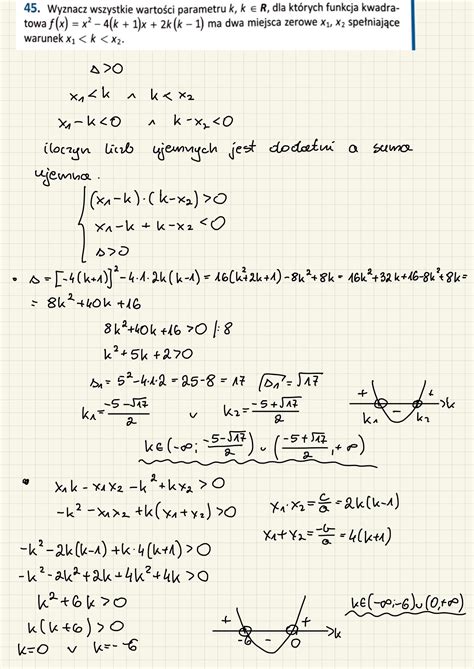 45. Wyznacz wszystkie wartości parametru k, k ∈ R, dla których funkcja kwadra-
towa f(x) = x² − 4(k + 1)x + 2k(k − 1) ma dwa miejsca zerowe x₁, x₂ spełniające
warunek x₁ < k < x₂.
Δ>0
x₁<k ∧ k<x₂
x₁-k<0 ∧ k-x₂<0
iloczyn liczb ujemnych jest dodatni a suma
ujemna.
(x₁-k)·(k-x₂)>0
x₁-k+k-x₂<0
Δ>0
• Δ=[-4(k+1)]²-4·1·2k(k-1)=16(k²+2k+1)-8k²+8k=16k²+32k+16-8k²+8k=
= 8k²+40k+16
8k²+40k+16>0 /:8
k²+5k+2>0
Δ₁=5²-4·1·2=25-8=17 √Δ₁=√17
k₁=(-5-√17)/2 ∪ k₂=(-5+√17)/2
+ - + k₁ k₂ >k
k∈(-∞; (-5-√17)/2) ∪ ((-5+√17)/2, +∞)
• x₁k-x₁x₂-k²+kx₂>0
-k²-x₁x₂+k(x₁+x₂)>0
x₁·x₂=c/a=2k(k-1)
x₁+x₂=-b/a=4(k+1)
-k²-2k(k-1)+k·4(k+1)>0
-k²-2k²+2k+4k²+4k>0
k²+6k>0
k(k+6)>0
k=0 ∨ k=-6
+ - + -6 0 >k
k∈(-∞;-6)∪(0,+∞)